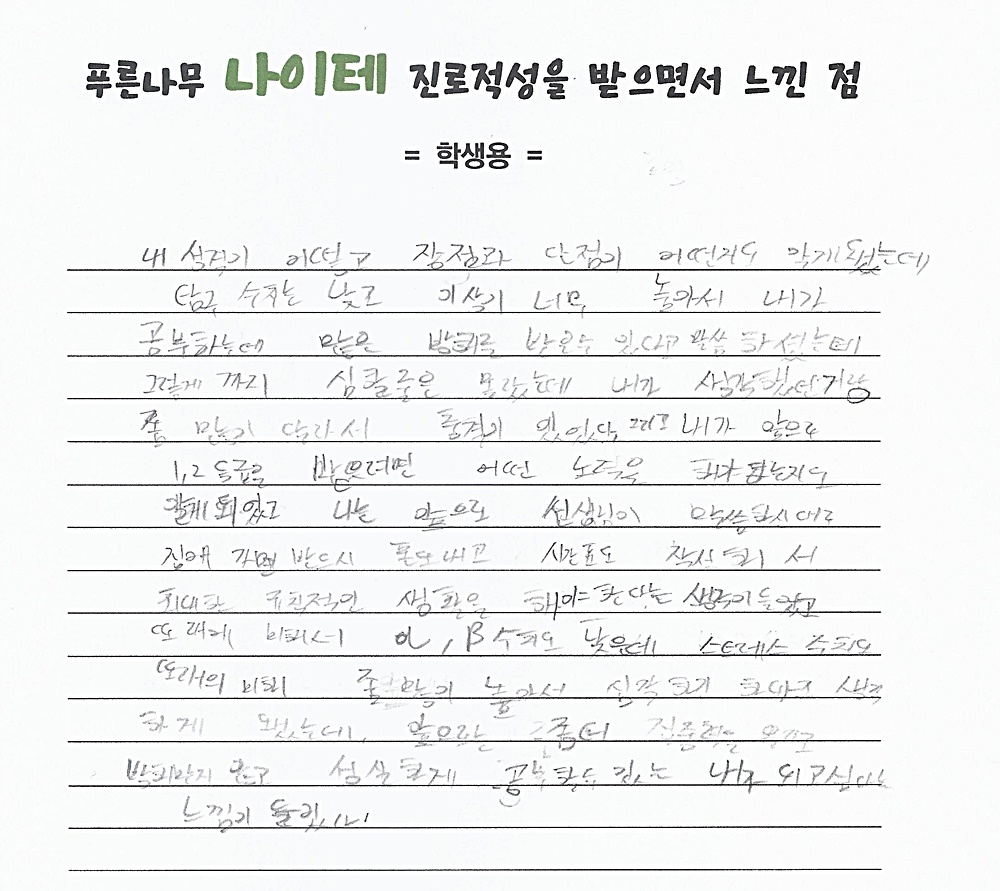 푸른나무 나이테 진로적성을 받으면서 느낀 점
= 학생용 =
내 성격이 어떻고 장점과 단점이 어떤거도 알게 되었는데
탐구 수치는 낮고 이상이 너무 높아서 내가
공부하는데 많은 방해를 받을수 있다고 말씀 하셨는데
그렇게 까지 심할줄은 몰랐는데 내가 생각했던거랑
좀 많이 달라서 충격이 있었다, 그리고 내가 앞으로
1,2 등급을 받으려면 어떤 노력을 해야 하는지도
알게 되었고 나는 앞으로 선생님이 말씀하신대로
집에 가면 반드시 폰도 내고 시간표도 작성 해서
최대한 규칙적인 생활을 해야 한다는 생각이 들었고
또래에 비해서 α, β 수치도 낮은데 스트레스 수치도
또래의 비해 좀 많이 높아서 심각하기 하다고 생각
하게 됐는데, 앞으로는 좀더 집중력을
방해받지 않고 성실하게 공부할수 있는 내가 되고싶다는
느낌이 들었